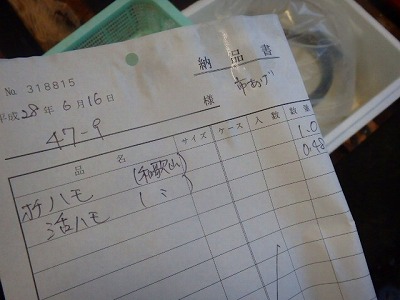 納品書
No. 318815
平成28年6月16日
様
47-9
品名 サイズ ケース 入数 数量
オチハモ (和歌山) 1.0
活ハモ (〃) 0.48